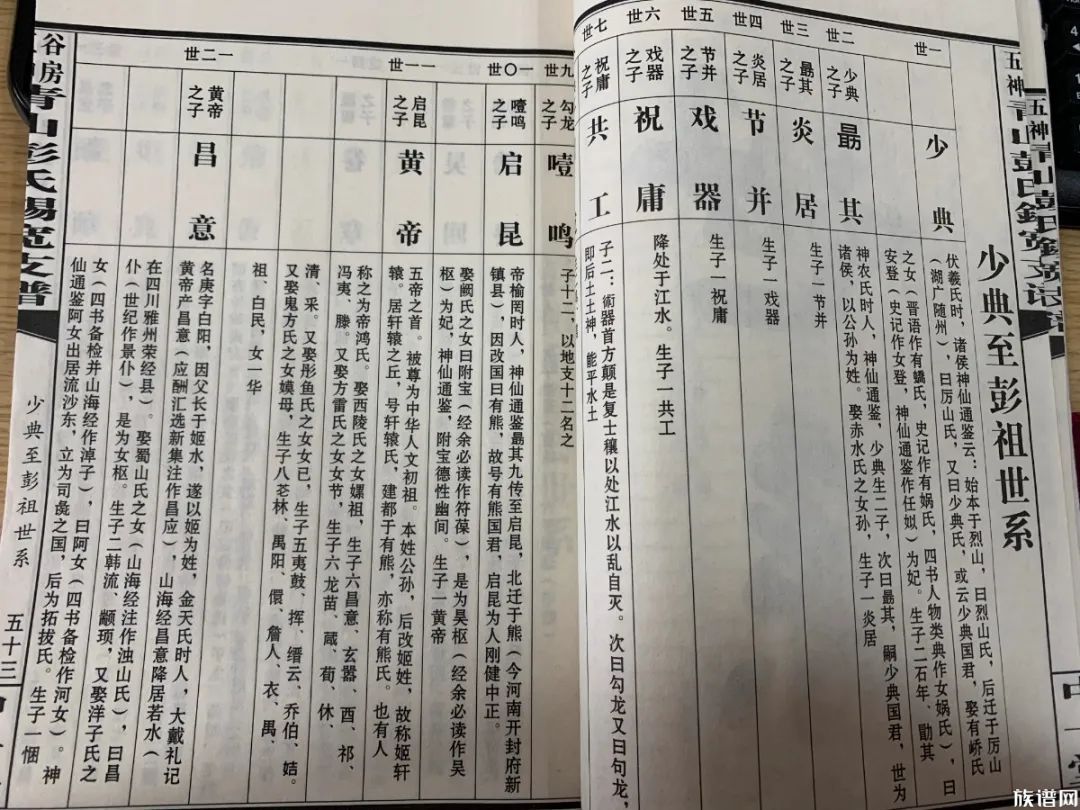 少典至彭祖世系
一世
少典
伏羲氏时，诸侯神仙通鉴云：始本于烈山，曰烈山氏，后迁于厉山
（湖广随州），曰厉山氏，又曰少典氏，或云少典国君，娶有峤氏
之女（晋语作有蟜氏，史记作有娲氏，四书人物类典作女娲氏），曰
安登（史记作女登，神仙通鉴作任姒）为妃。生子二石年、勖其
二世
少典之子
勗其
神农氏时人，神仙通鉴，少典生二子，次曰勗其，嗣少典国君，世为
诸侯，以公孙为姓。娶赤水氏之女孙，生子一炎居
三世
勗其之子
炎居
生子一节并
四世
炎居之子
节并
生子一戏器
五世
节并之子
戏器
生子一祝庸
六世
戏器之子
祝庸
降处于江水。生子一共工
七世
祝庸之子
共工
子二：術器首方颠是复土穰以处江水以乱自灭。次曰勾龙又曰句龙，
即后土土神，能平水土
九世
勾龙之子
噎鸣
子十二，以地支十二名之
一〇世
噎鸣之子
启昆
帝榆罔时人，神仙通鉴勗其九传至启昆，北迁于熊（今河南开封府新
镇县），因改国曰有熊，故号有熊国君，启昆为人刚健中正。
娶阙氏之女曰附宝（经余必读作符葆），是为昊枢（经余必读作吴
枢）为妃，神仙通鉴，附宝德性幽间。生子一黄帝
一一世
启昆之子
黄帝
五帝之首。被尊为中华人文初祖。本姓公孙，后改姬姓，故称姬轩
辕。居轩辕之丘，号轩辕氏，建都于有熊，亦称有熊氏。也有人
称之为帝鸿氏。娶西陵氏之女嫘祖，生子六昌意、玄嚣、酉、祁、
冯夷、滕。又娶方雷氏之女女节，生子六龙苗、葴、荀、休、
清、采。又娶彤鱼氏之女女己，生子五夷鼓、挥、缙云、乔伯、姞。
又娶鬼方氏之女嫫母，生子八苍林、禺阳、儇、詹人、衣、禺、
祖、白民，女一华
一二世
黄帝之子
昌意
名庚字白阳，因父长于姬水，遂以姬为姓，金天氏时人，大戴礼记
黄帝产昌意（应酬汇选新集注作昌应），山海经昌意降居若水（
在四川雅州荣经县）。娶蜀山氏之女（山海经注作浊山氏），曰昌
仆（世纪作景仆），是为女枢。生子二韩流、颛顼，又娶洋子氏之
女（四书备检并山海经作淖子），曰阿女（四书备检作河女）。神
仙通鉴阿女出居流沙东，立为司彘之国，后为拓拔氏。生子一悃
青山彭氏锡宽支谱
少典至彭祖世系
五十三
族谱网